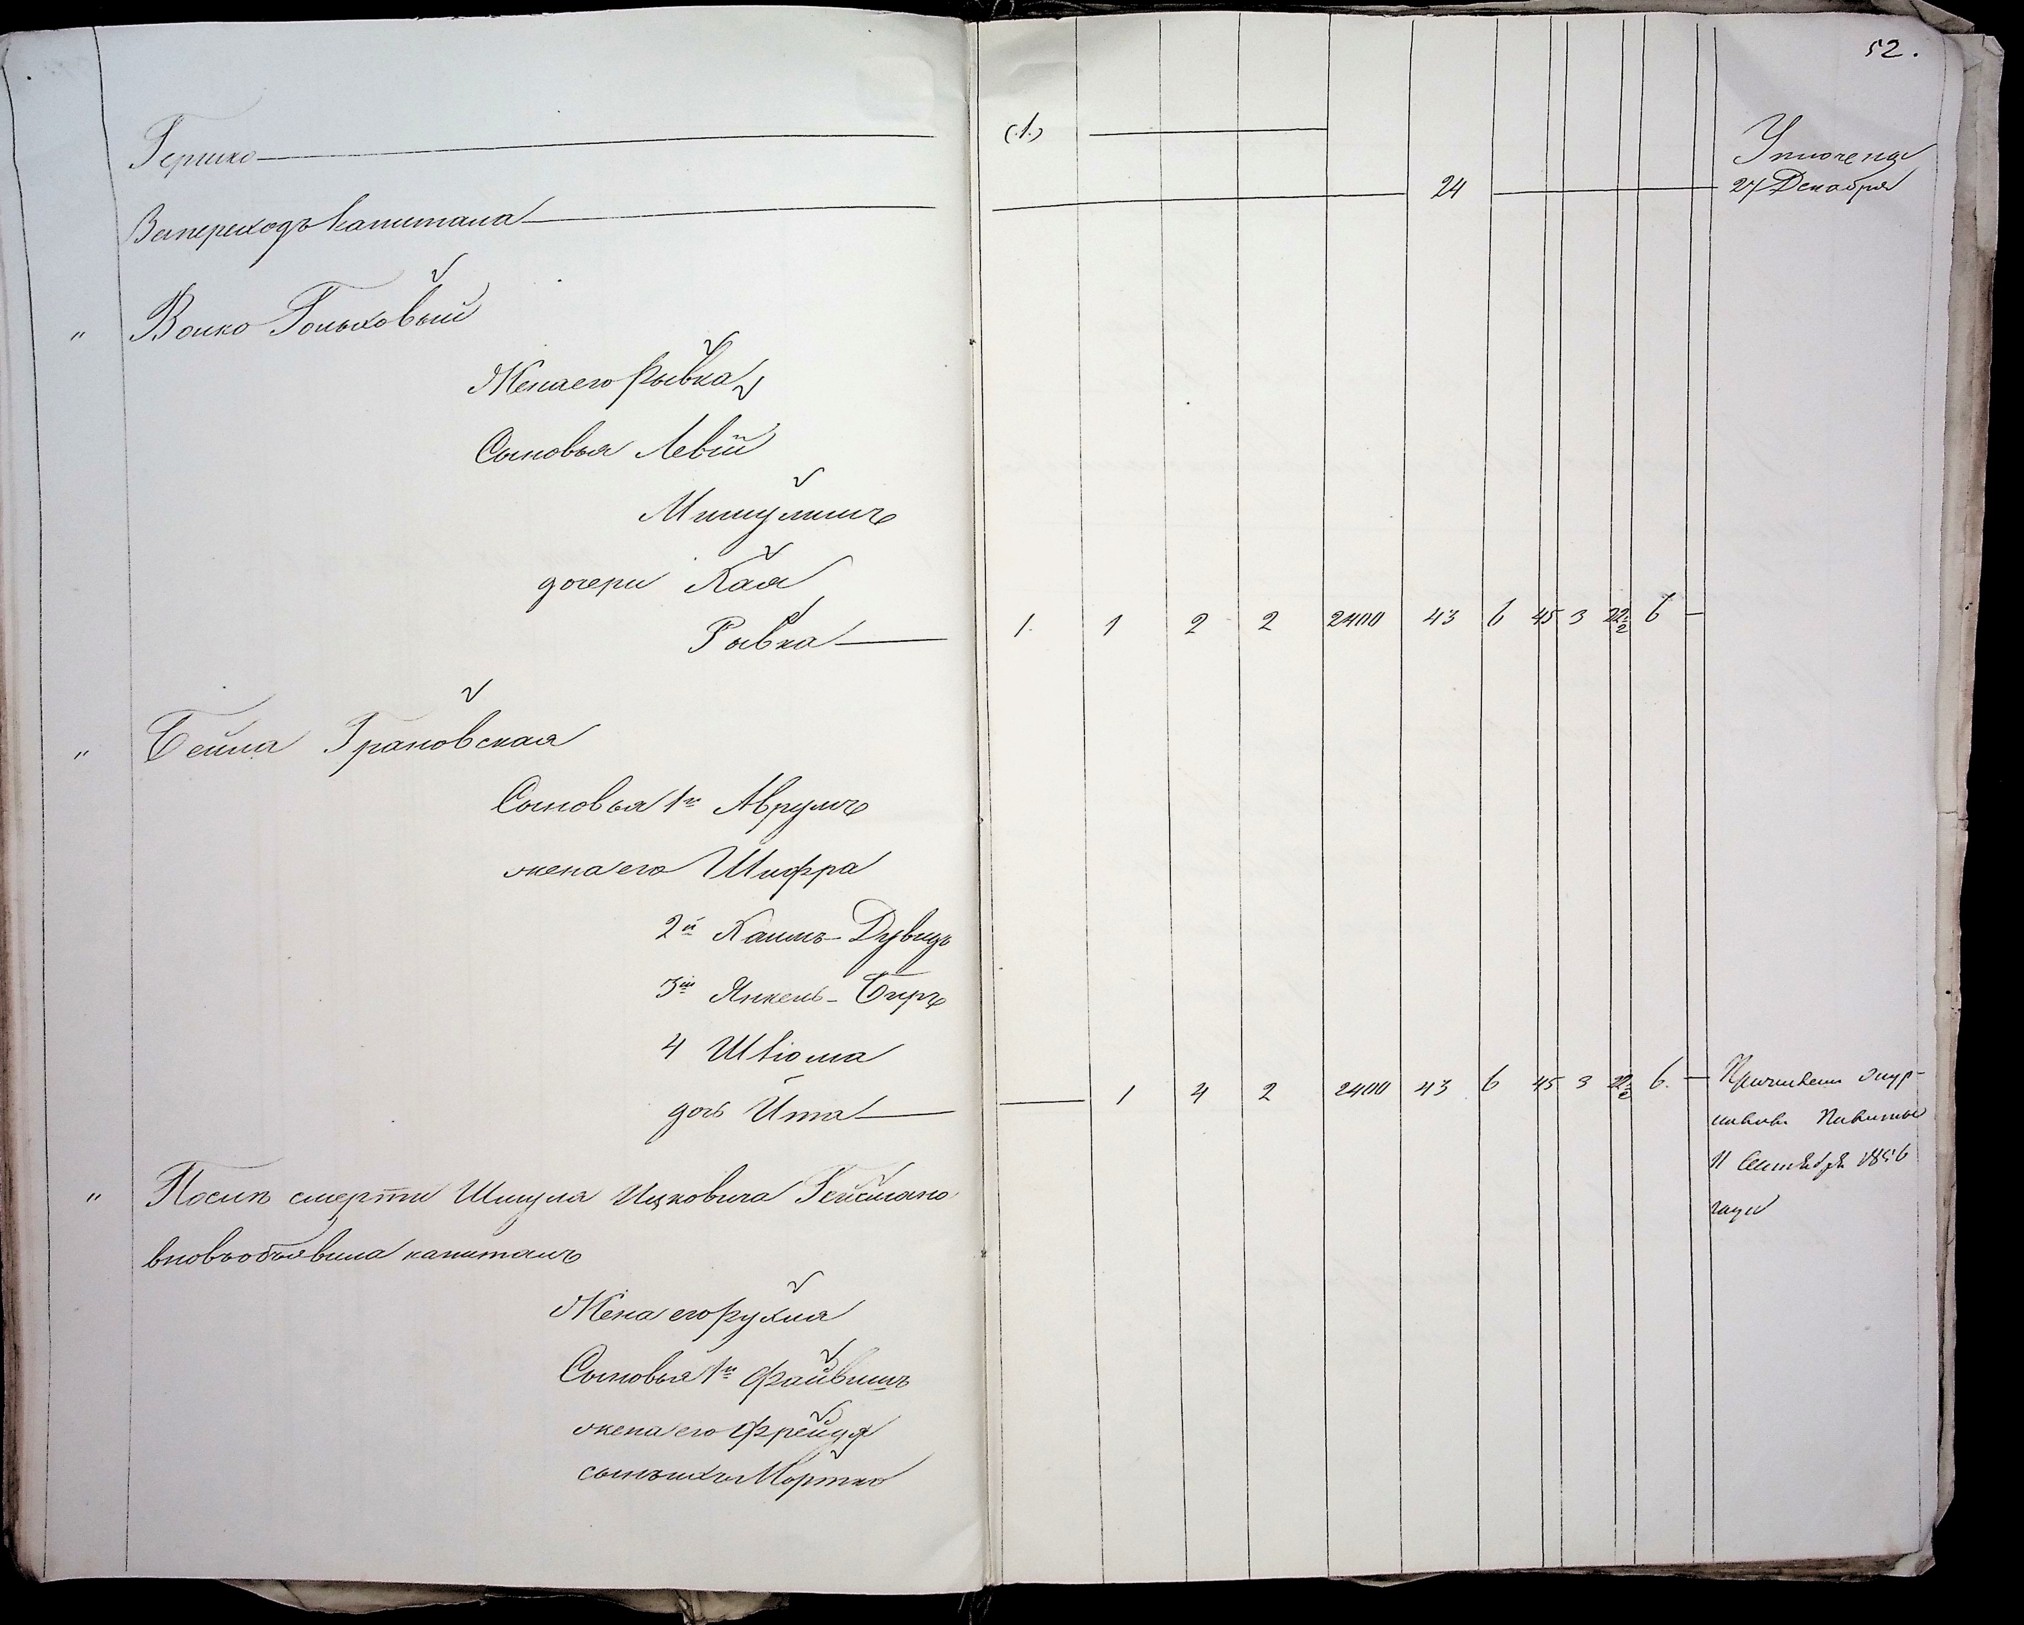 52.
Гершко (1)
Уплочена
За переходъ капитала 24 27 Декабря
" Волко Гольховый
Жена его Рывка
Сыновья Левій
Мишулимъ
дочери Хая
Рывка 1. 1 2 2 2400 43 6 45 3 22 1/2 6
" Бейла Грановская
Сыновья 1й Аврумъ
жена его Шифра
2й Хаимъ-Дувидъ
3ій Янкель-Беръ
4 Шліома
дочь Ита 1 4 2 2400 43 6 45 3 22 1/2 6.
11 Сентября 1856
года
" Послѣ смерти Шмуля Ицковича Гейсмана
вновь объявила капиталъ
Жена его Рухля
Сыновья 1й Файвишъ
жена его Фрейда
сынъ ихъ Мортко